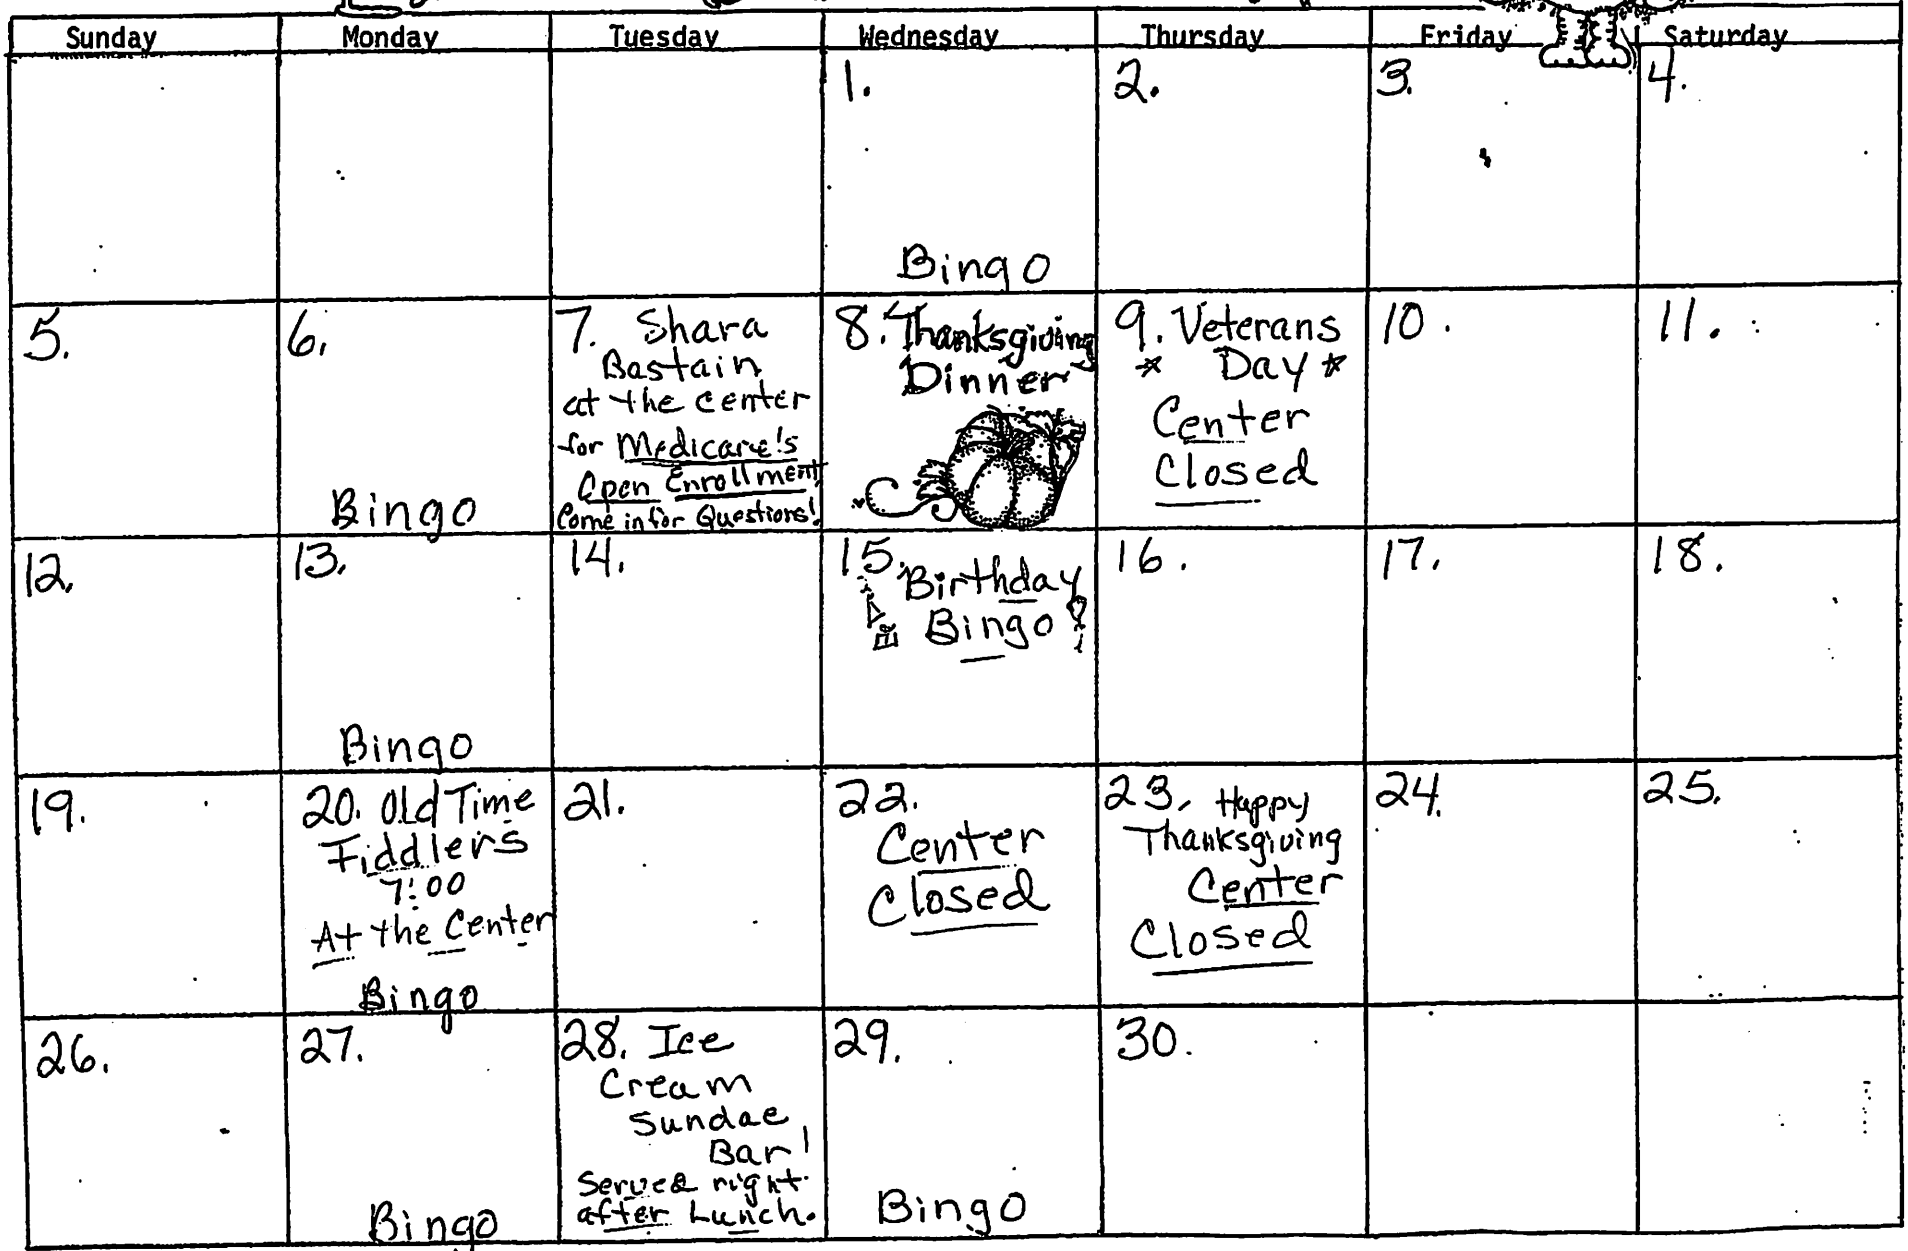 Sunday Monday Tuesday Wednesday Thursday Friday Saturday
1.
Bingo
2.
3.
4.
5.
6.
Bingo
7. Shara
Bastain
at the center
for Medicare's
Open Enrollment
Come in for Questions!
8. Thanksgiving
Dinner
9. Veterans
Day
Center
Closed
10.
11.
12.
13.
Bingo
14.
15. Birthday
Bingo
16.
17.
18.
19.
20. Old Time
Fiddlers
7:00
At the Center
Bingo
21.
22.
Center
Closed
23. Happy
Thanksgiving
Center
Closed
24.
25.
26.
27.
Bingo
28. Ice
Cream
Sundae
Bar!
Served right
after Lunch.
29.
Bingo
30.